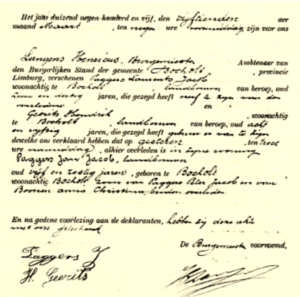 Het jaar duizend negen honderd en vijf, den zeventienden der
maand Maart, ten negen ure voormiddag zijn voor ons
Burgemeester Ambtenaar van
den Burgerlijken Stand der gemeente Bocholt, provincie
Limburg, verschenen Paggers Jacob
woonachtig te Bocholt, landbouwer van beroep, oud
jaren, die gezegd heeft te zijn van den
overledene en
Geerits Hendrik, landbouwer
te Bocholt van beroep, oud acht
en vijftig jaren, die gezegd heeft gebuur en van te zijn
dewelke ons verklaard hebben dat op gisteren, ten twee
ure namiddag, alhier overleden is in zijne woning
Paggers Jan Jacob, landbouwer
oud vijf en zestig jaren, geboren te Bocholt
woonachtig Bocholt zoon van Paggers Peter Jacob en van
Anna Christina, beiden overleden
En na gedane voorlezing aan de deklaranten, hebben zij deze akte
met ons geteekend
De Burgemeester voornoemd,
Paggers J
H. Gerits